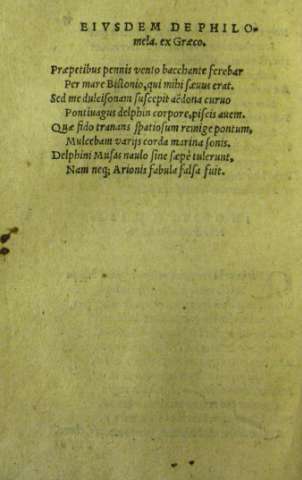 EIVSDEM DE PHILO-
mela. ex Græco.
Præpetibus pennis vento bacchante ferebar
Per mare Bistonio, qui mihi sæuus erat.
Sed me dulcisonam suscepit aëdona curuo
Pontiuagus delphin corpore, piscis auem.
Quæ fido tranans spatiosum remige pontum,
Mulcebam varijs corda marina sonis.
Delphini Musas naulo sine sæpè tulerunt,
Nam neq; Arionis fabula falsa fuit.